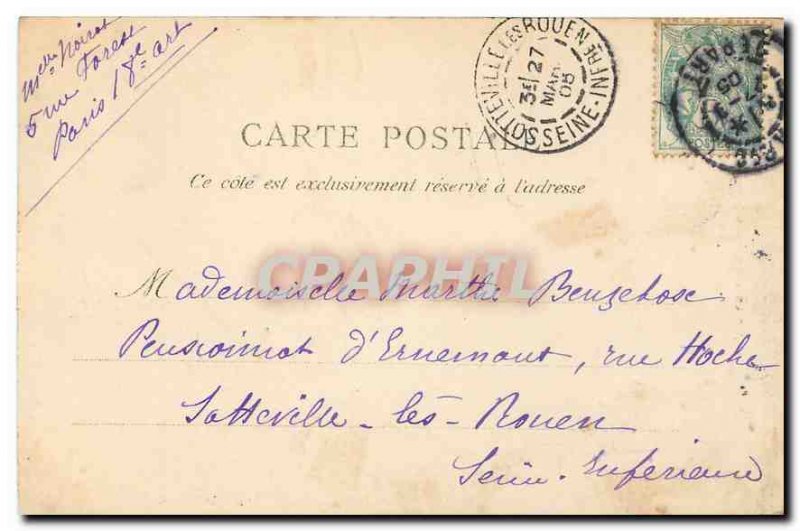 Mme Noirot
5 rue Forest
Paris 18e art
SOTTEVILLE LES ROUEN
SEINE-INFRE
3E 27
MAR
05
DEPART
05
CARTE POSTALE
Ce côté est exclusivement réservé à l'adresse
CPAPHIL
Mademoiselle Marthe Beuzebosc
Pensionnat d'Ernemont, rue Hoche
Sotteville-lès-Rouen
Seine-Inférieure